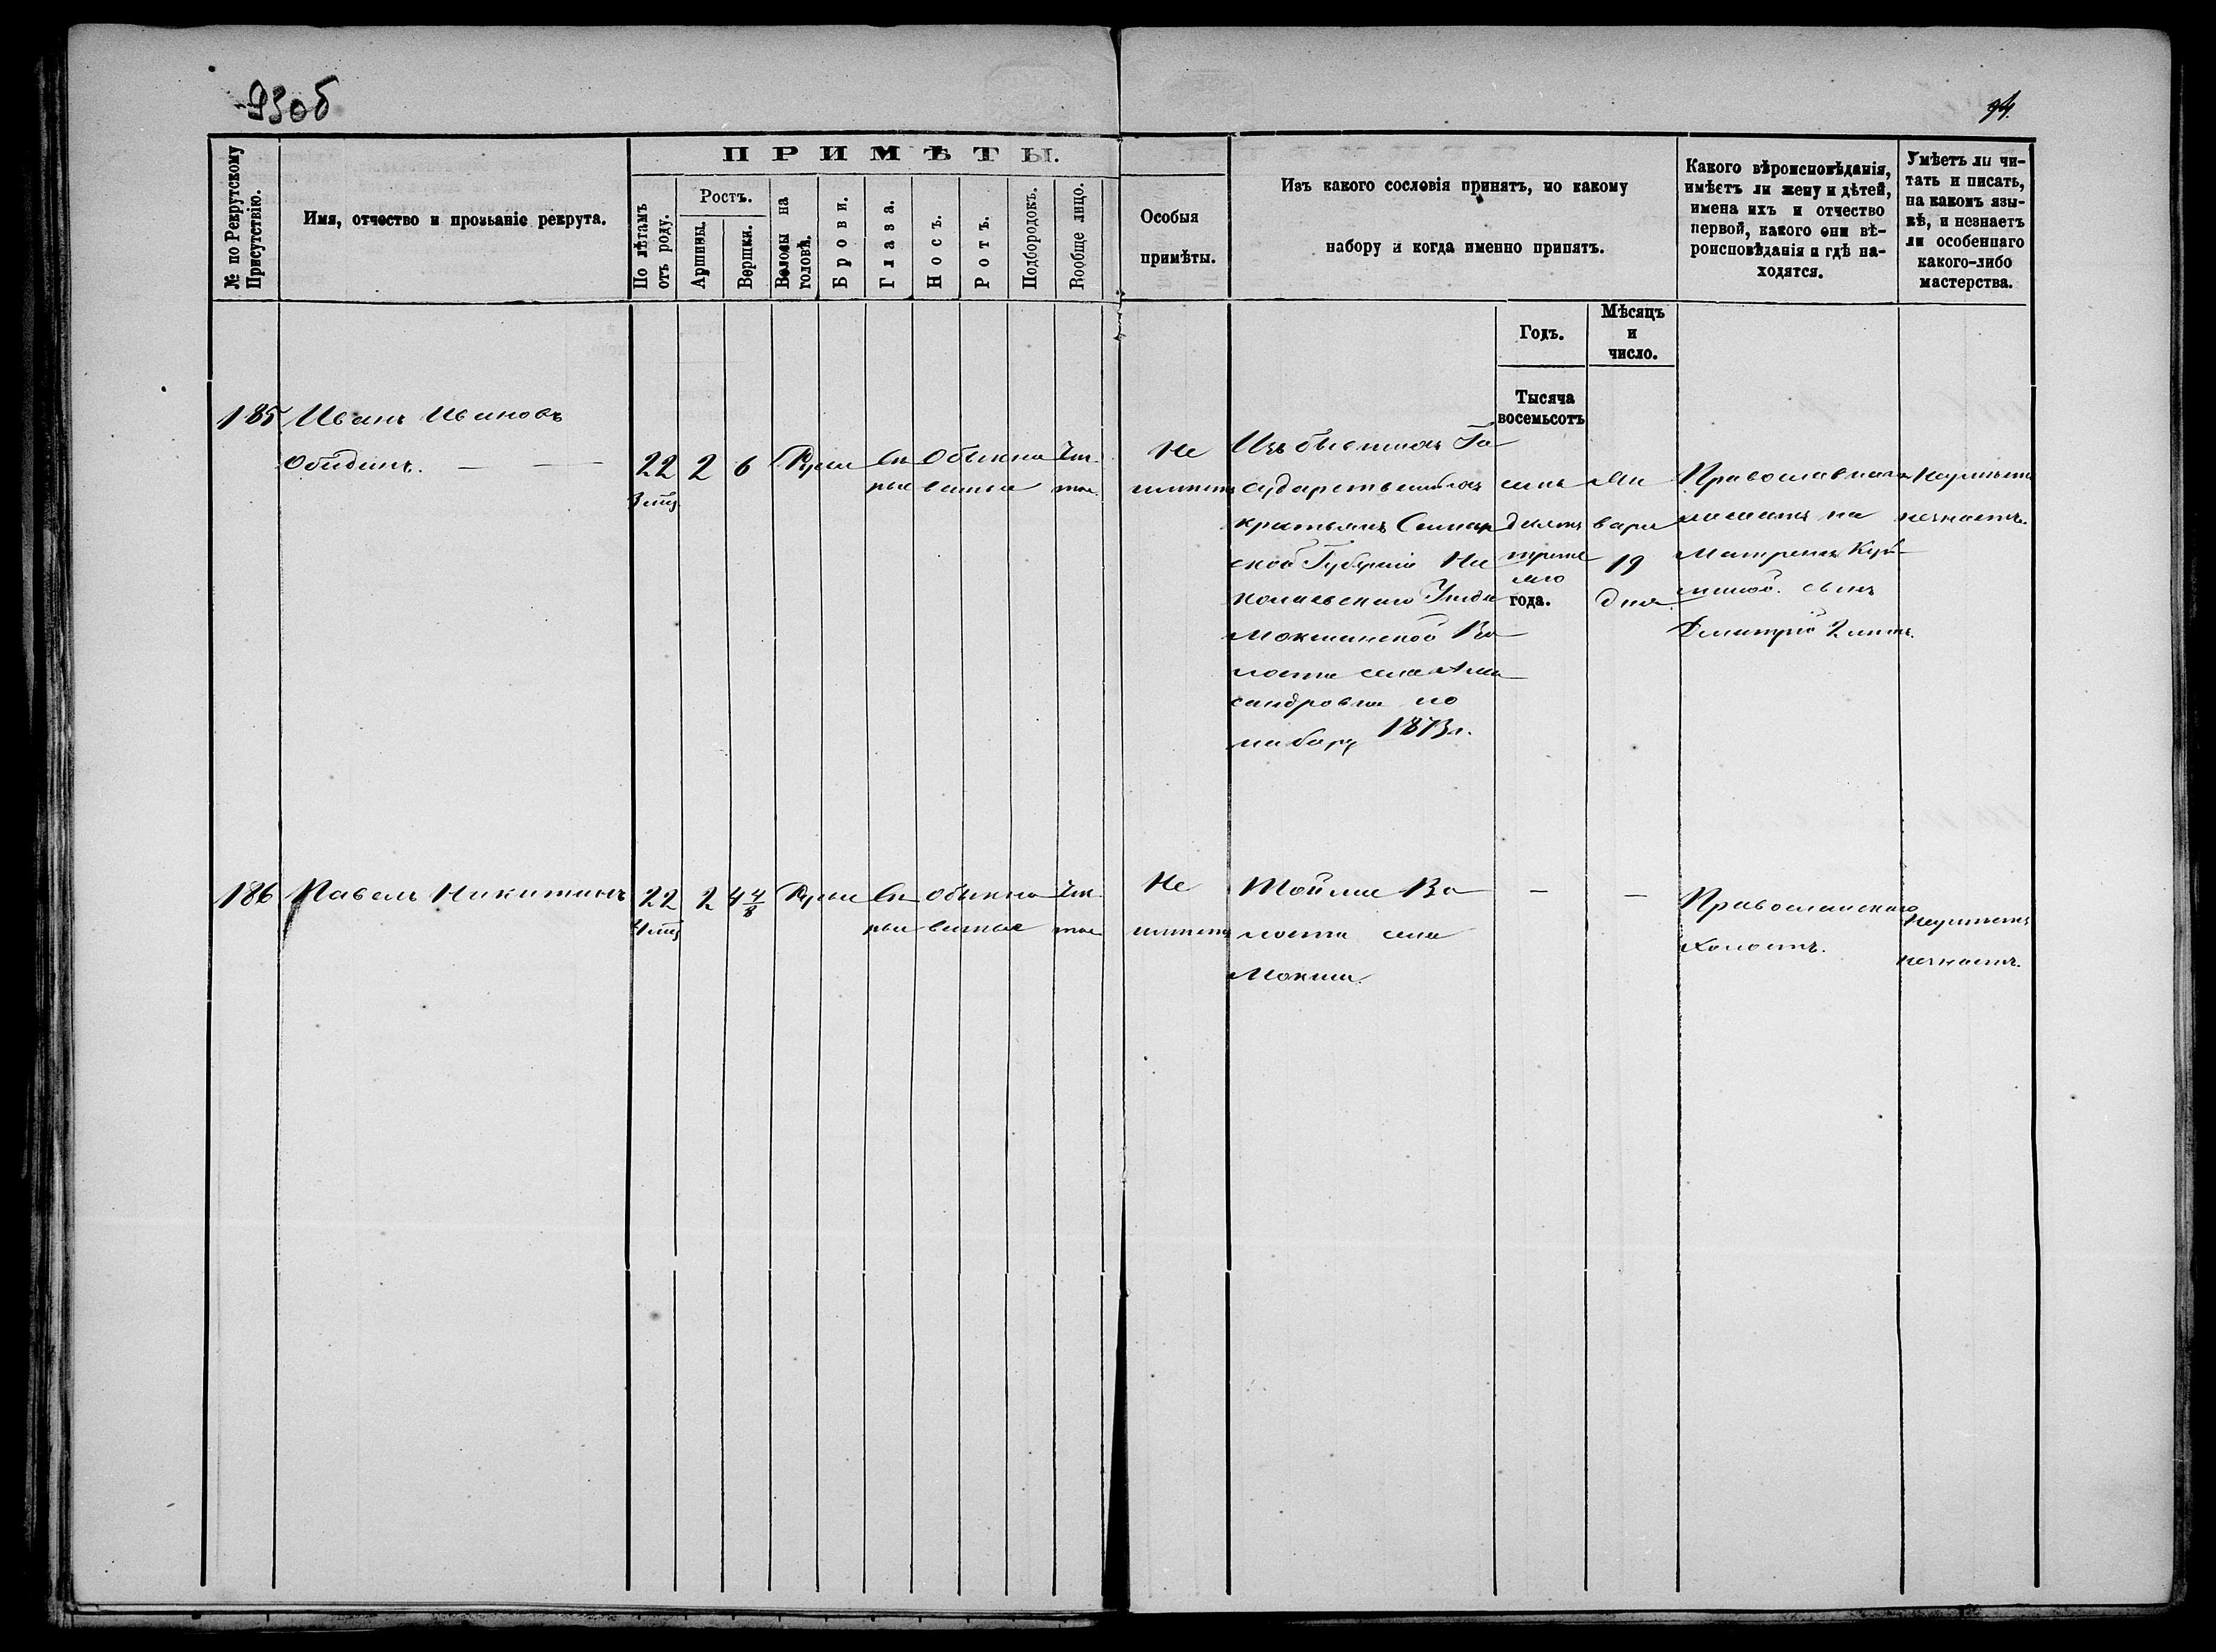 93об
94.
№ по Рекрутскому
Присутствію.
Имя, отчество и прозваніе рекрута.
ПРИМѢТЫ.
По лѣтамъ
отъ роду.
Ростъ.
Аршины.
Вершки.
Волосы на
головѣ.
Брови.
Глаза.
Носъ.
Ротъ.
Подбородокъ.
Вообще лицо.
Особыя
примѣты.
Изъ какого сословія принятъ, по какому
набору и когда именно принятъ.
Какого вѣроисповѣданія,
имѣетъ ли жену и дѣтей,
имена ихъ и отчество
первой, какого они вѣ-
роисповѣданія и гдѣ на-
ходятся.
Умѣетъ ли чи-
тать и писать,
на какомъ язы-
кѣ, и незнаетъ
ли особеннаго
какого-либо
мастерства.
Годъ.
Мѣсяцъ
и
число.
Тысяча
восемьсотъ
185
Иванъ Ивановъ
Обидинъ.
22
3 мѣц
2
6
Русые
Сѣ
рые
Обыкно
венные
Чис
тое
Не
имѣетъ
Изъ бывшихъ Го
сударственныхъ
крестьянъ Самар
ской Губерніи Ни
колаевскаго Уѣзда
Мокшанской Во
лости села Алек
сандровки по
набору 1873 г.
семь
десятъ
треть
яго
года.
Ян
варя
19
дня
Православнаго
женатъ на
Матренѣ Кузь
миной. сынъ
Дмитрій 2 лѣтъ.
Неумѣетъ
незнаетъ.
186
Павелъ Никитинъ
22
4 мѣц
2
4 4/8
Русые
Сѣ
рые
Обыкно
венные
Чис
тое
Не
имѣетъ
Тойже Во
лости села
Мокши.
—
—
Православнаго
Холостъ.
Неумѣетъ
незнаетъ.